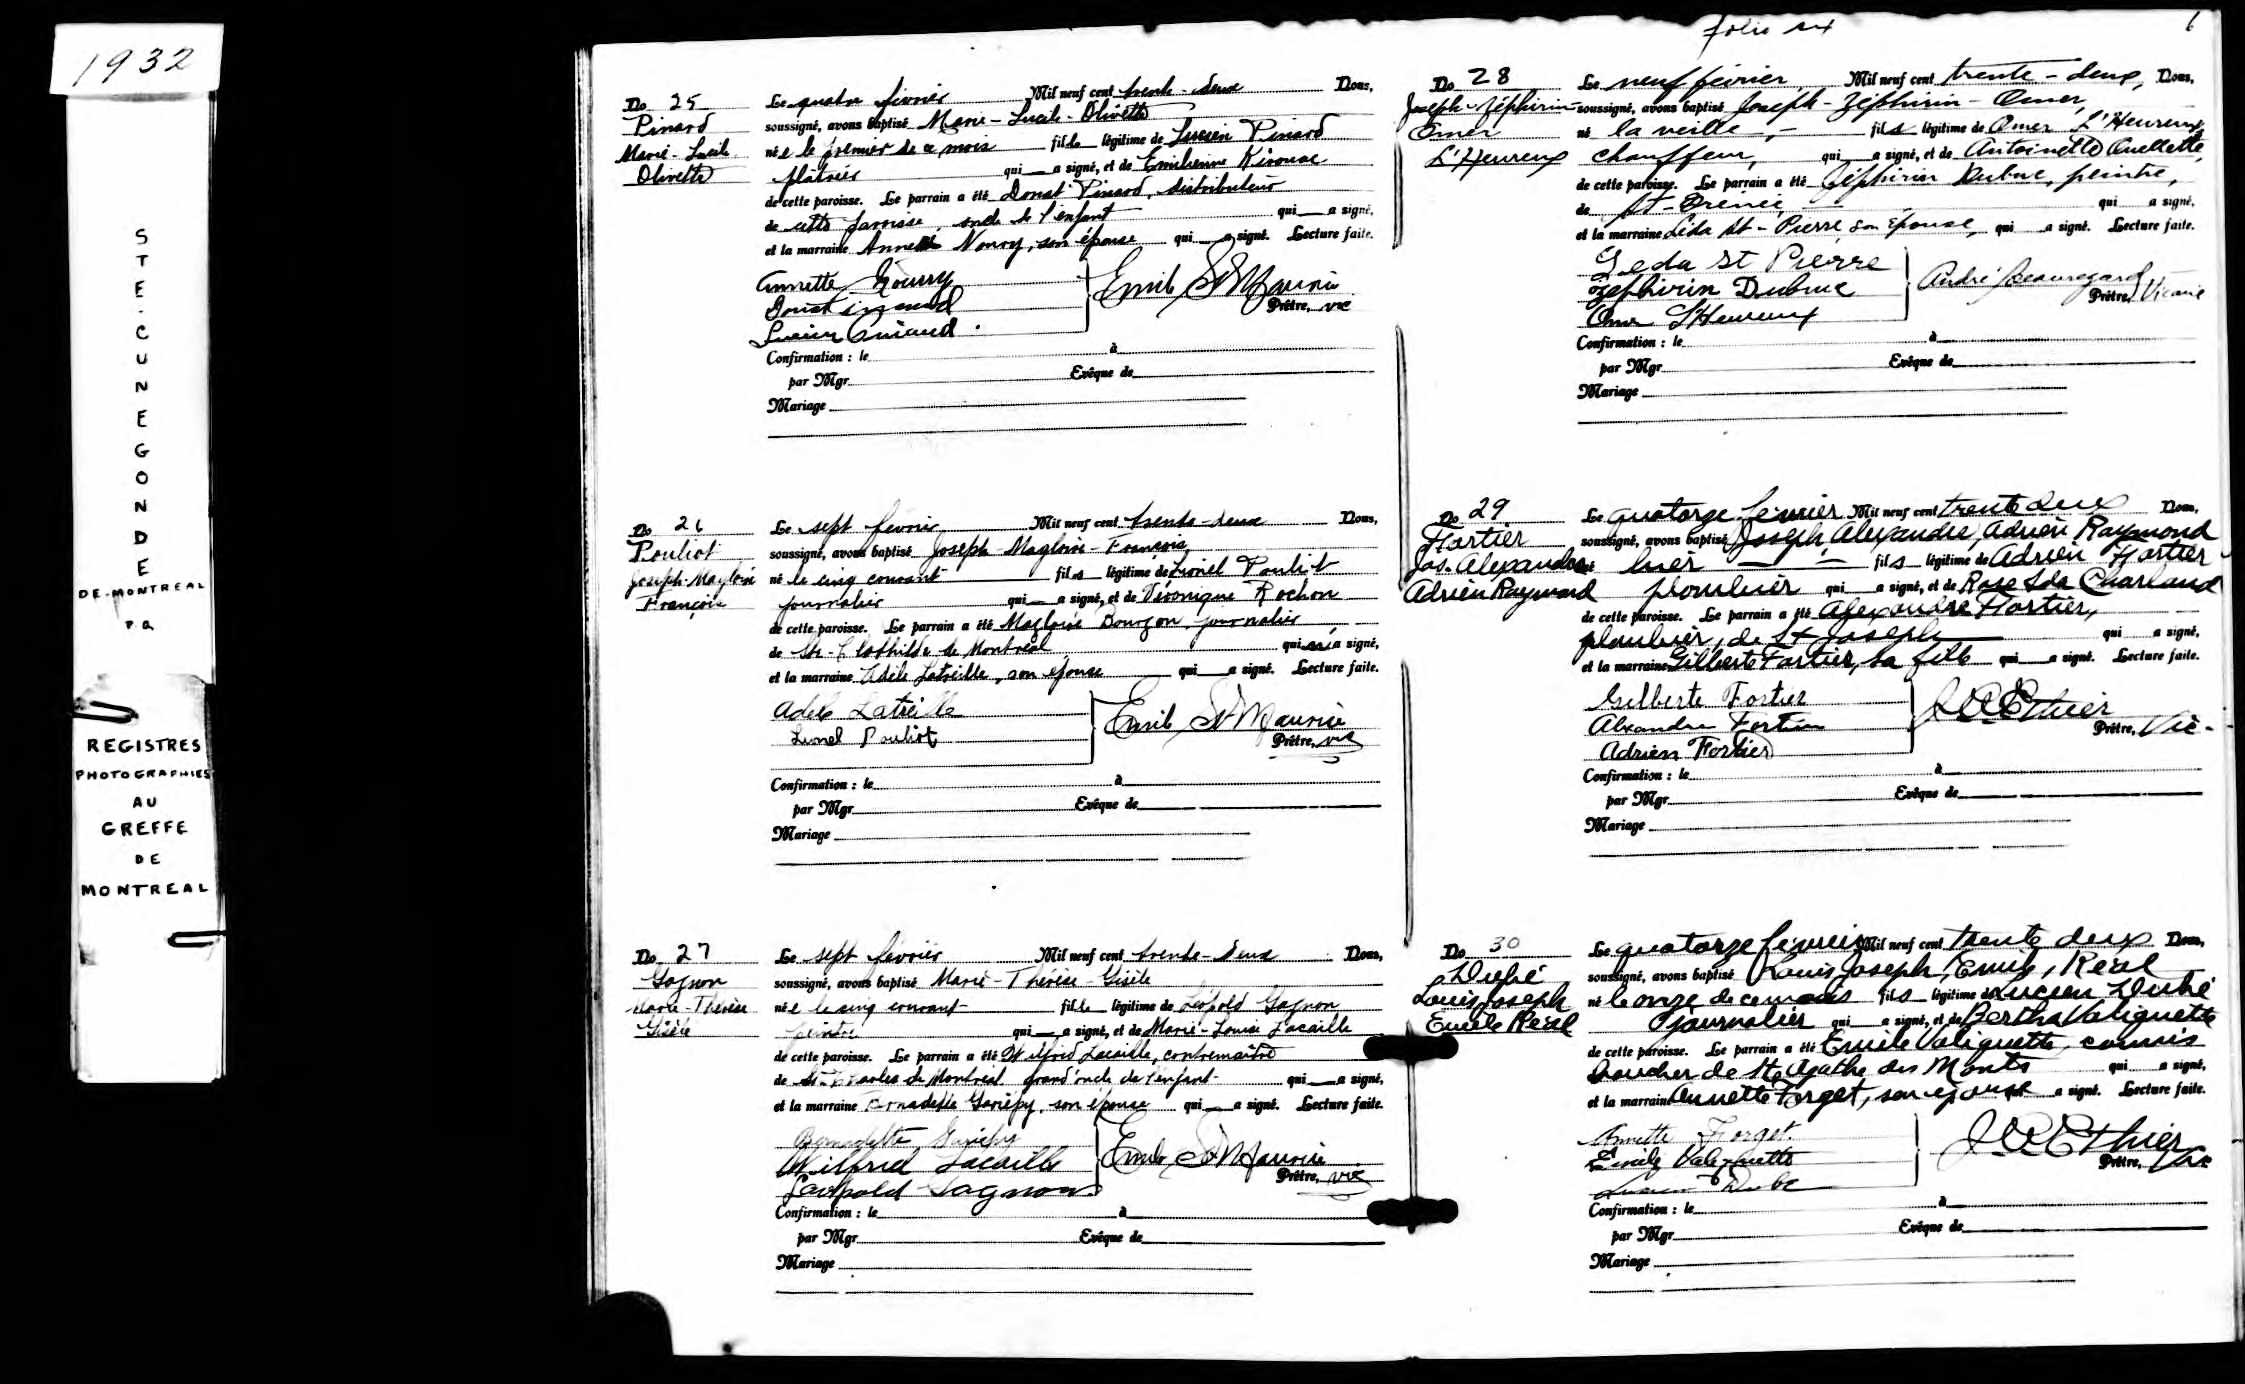 1932
STE. CUNEGONDE
DE MONTREAL
P.Q.
REGISTRES
PHOTOGRAPHIES
AU
GREFFE
DE
MONTREAL
No 25
Pinard
Marie-Lucile
Olivette
Le quatre février Mil neuf cent trente-deux Nous,
soussigné, avons baptisé Marie-Lucile-Olivette
née le premier de ce mois fille légitime de Lucien Pinard
plâtrier qui a signé, et de Emilienne Kirouac
de cette paroisse. Le parrain a été Donat Pinard, distributeur
de cette paroisse, oncle de l'enfant qui a signé,
et la marraine Annette Nourry, son épouse qui a signé. Lecture faite.
Annette Nourry
Donat Pinard
Lucien Pinard
Emile St Maurice
Prêtre, vic
Confirmation : le à
par Mgr Evêque de
Mariage
No 26
Pouliot
Joseph-Magloire
François
Le sept février Mil neuf cent trente-deux Nous,
soussigné, avons baptisé Joseph-Magloire-François
né le cinq courant fils légitime de Lionel Pouliot
journalier qui a signé, et de Véronique Rochon
de cette paroisse. Le parrain a été Magloire Bourgon, journalier
de Ste-Clothilde de Montréal qui n'a signé,
et la marraine Adèle Latreille, son épouse qui a signé. Lecture faite.
Adèle Latreille
Lionel Pouliot
Emile St Maurice
Prêtre, vic
Confirmation : le à
par Mgr Evêque de
Mariage
No 27
Gagnon
Marie-Thérèse
Gisèle
Le sept février Mil neuf cent trente-deux Nous,
soussigné, avons baptisé Marie-Thérèse-Gisèle
née le cinq courant fille légitime de Léopold Gagnon
peintre qui a signé, et de Marie-Louise Lacaille
de cette paroisse. Le parrain a été Wilfrid Lacaille, contremaître
de St-Charles de Montréal grand'oncle de l'enfant qui a signé,
et la marraine Bernadette Gariépy, son épouse qui a signé. Lecture faite.
Bernadette Gariépy
Wilfrid Lacaille
Léopold Gagnon
Emile St Maurice
Prêtre, vic
Confirmation : le à
par Mgr Evêque de
Mariage
folio six
6
No 28
Joseph-Zéphirin
Omer
L'Heureux
Le neuf février Mil neuf cent trente-deux, Nous,
soussigné, avons baptisé Joseph-Zéphirin-Omer,
né la veille, fils légitime de Omer L'Heureux
chauffeur, qui a signé, et de Antoinette Ouellette,
de cette paroisse. Le parrain a été Zéphirin Dubuc, peintre,
de St-Irénée, qui a signé,
et la marraine Léda St-Pierre, son épouse, qui a signé. Lecture faite.
Leda St Pierre
Zephirin Dubuc
Omer L'Heureux
André Beauregard
Prêtre, Vicaire
Confirmation : le à
par Mgr Evêque de
Mariage
No 29
Fortier
Jos. Alexandre
Adrien Raymond
Le quatorze février Mil neuf cent trente deux Nous,
soussigné, avons baptisé Joseph, Alexandre, Adrien Raymond
né hier fils légitime de Adrien Fortier
plombier qui a signé, et de Rose Ida Charland
de cette paroisse. Le parrain a été Alexandre Fortier,
plombier, de St Joseph qui a signé,
et la marraine Gilberte Fortier, sa fille qui a signé. Lecture faite.
Gilberte Fortier
Alexandre Fortier
Adrien Fortier
Ethier
Prêtre, Vic.
Confirmation : le à
par Mgr Evêque de
Mariage
No 30
Dubé
Louis Joseph
Emile Réal
Le quatorze février Mil neuf cent trente deux Nous,
soussigné, avons baptisé Louis Joseph, Emile, Réal
né le onze de ce mois fils légitime de Lucien Dubé
journalier qui a signé, et de Bertha Valiquette
de cette paroisse. Le parrain a été Emile Valiquette, commis
boucher de Ste Agathe des Monts qui a signé,
et la marraine Annette Forget, son épouse a signé. Lecture faite.
Annette Forget
Emile Valiquette
Lucien Dubé
Ethier
Prêtre, Vic
Confirmation : le à
par Mgr Evêque de
Mariage